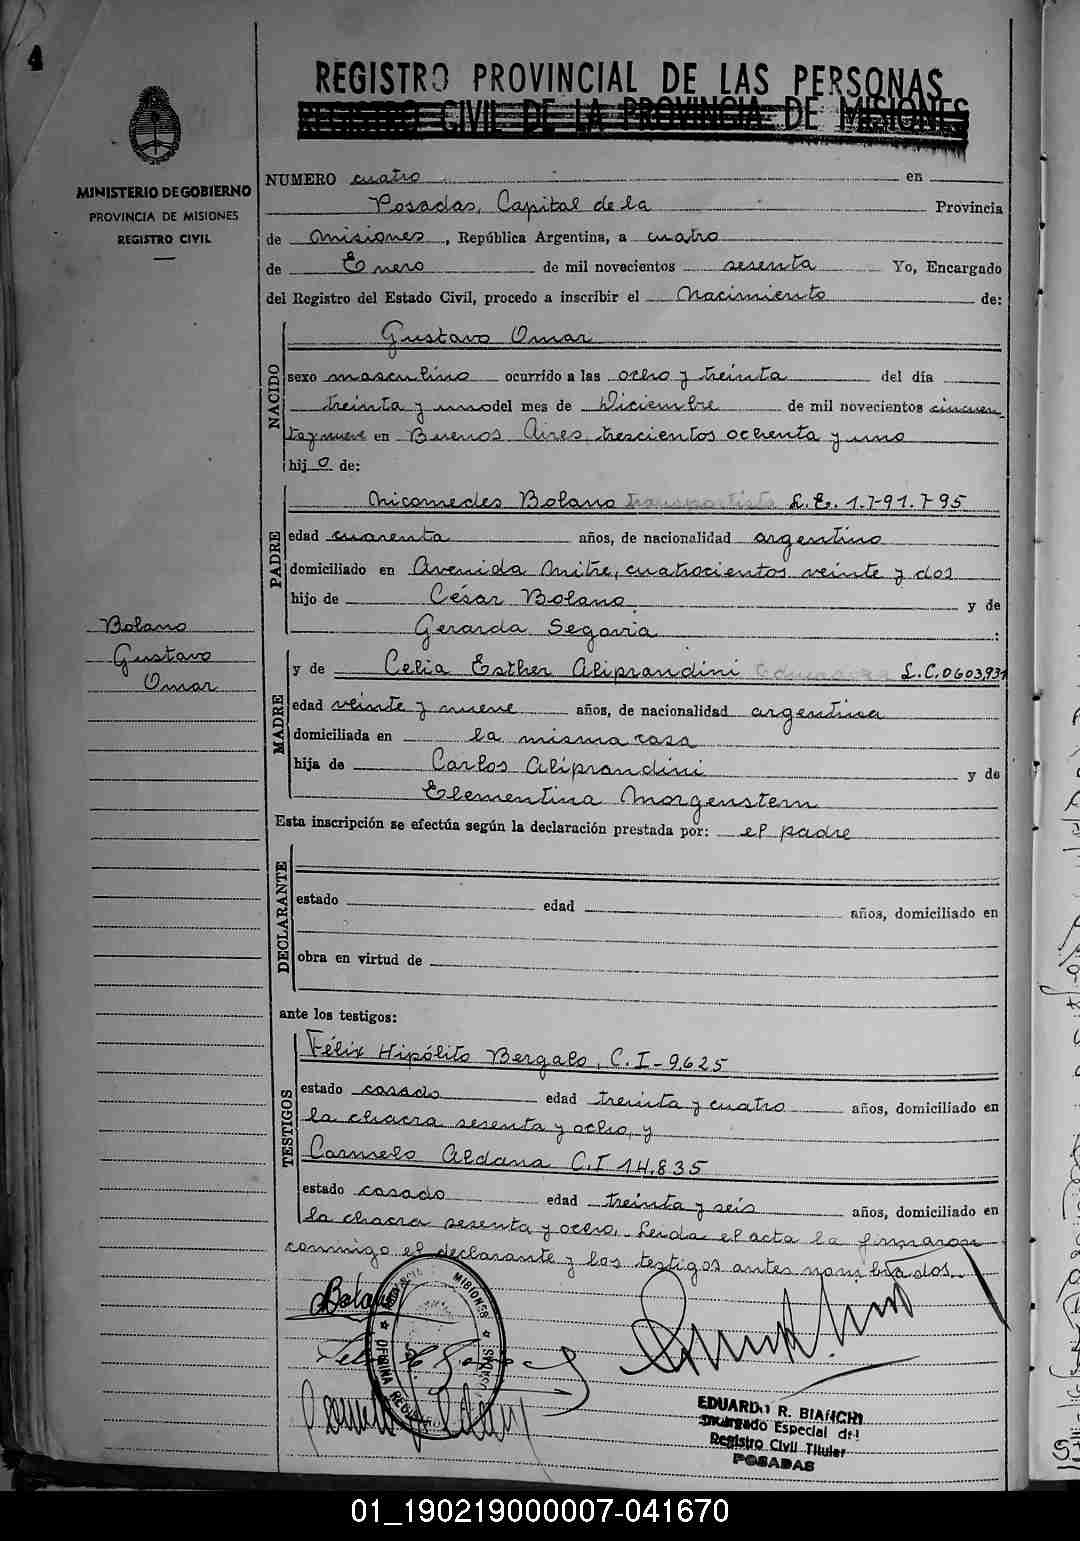 4
REGISTRO PROVINCIAL DE LAS PERSONAS
REGISTRO CIVIL DE LA PROVINCIA DE MISIONES
MINISTERIO DE GOBIERNO
PROVINCIA DE MISIONES
REGISTRO CIVIL
NUMERO cuatro en
Posadas, Capital de la Provincia
de Misiones, República Argentina, a cuatro
de Enero de mil novecientos sesenta Yo, Encargado
del Registro del Estado Civil, procedo a inscribir el Nacimiento de:
NACIDO
Gustavo Omar
sexo masculino ocurrido a las ocho y treinta del día
treinta y uno del mes de Diciembre de mil novecientos cincuen
ta y nueve en Buenos Aires, trescientos ochenta y uno
hij o de:
PADRE
Nicomedes Bolano transportista L.E. 1.791.795
edad cuarenta años, de nacionalidad argentino
domiciliado en Avenida Mitre, cuatrocientos veinte y dos
hijo de César Bolano y de
Gerarda Segovia :
Bolano
Gustavo
Omar
MADRE
y de Celia Esther Aliprandini L.C.0603931
edad veinte y nueve años, de nacionalidad argentina
domiciliada en la misma casa
hija de Carlos Aliprandini y de
Clementina Morgenstern
Esta inscripción se efectúa según la declaración prestada por: el padre
DECLARANTE
estado edad años, domiciliado en
obra en virtud de
ante los testigos:
TESTIGOS
Félix Hipólito Bergalo, C.I-9.625
estado casado edad treinta y cuatro años, domiciliado en
la chacra sesenta y ocho, y
Carmelo Aldana C.I 14.835
estado casado edad treinta y seis años, domiciliado en
la chacra sesenta y ocho. Leida el acta la firmaron
conmigo el declarante y los testigos antes nombrados.
MISIONES
OFICINA
POSADAS
EDUARDO R. BIANCHI
Encargado Especial del
Registro Civil Titular
POSADAS
01_190219000007-041670